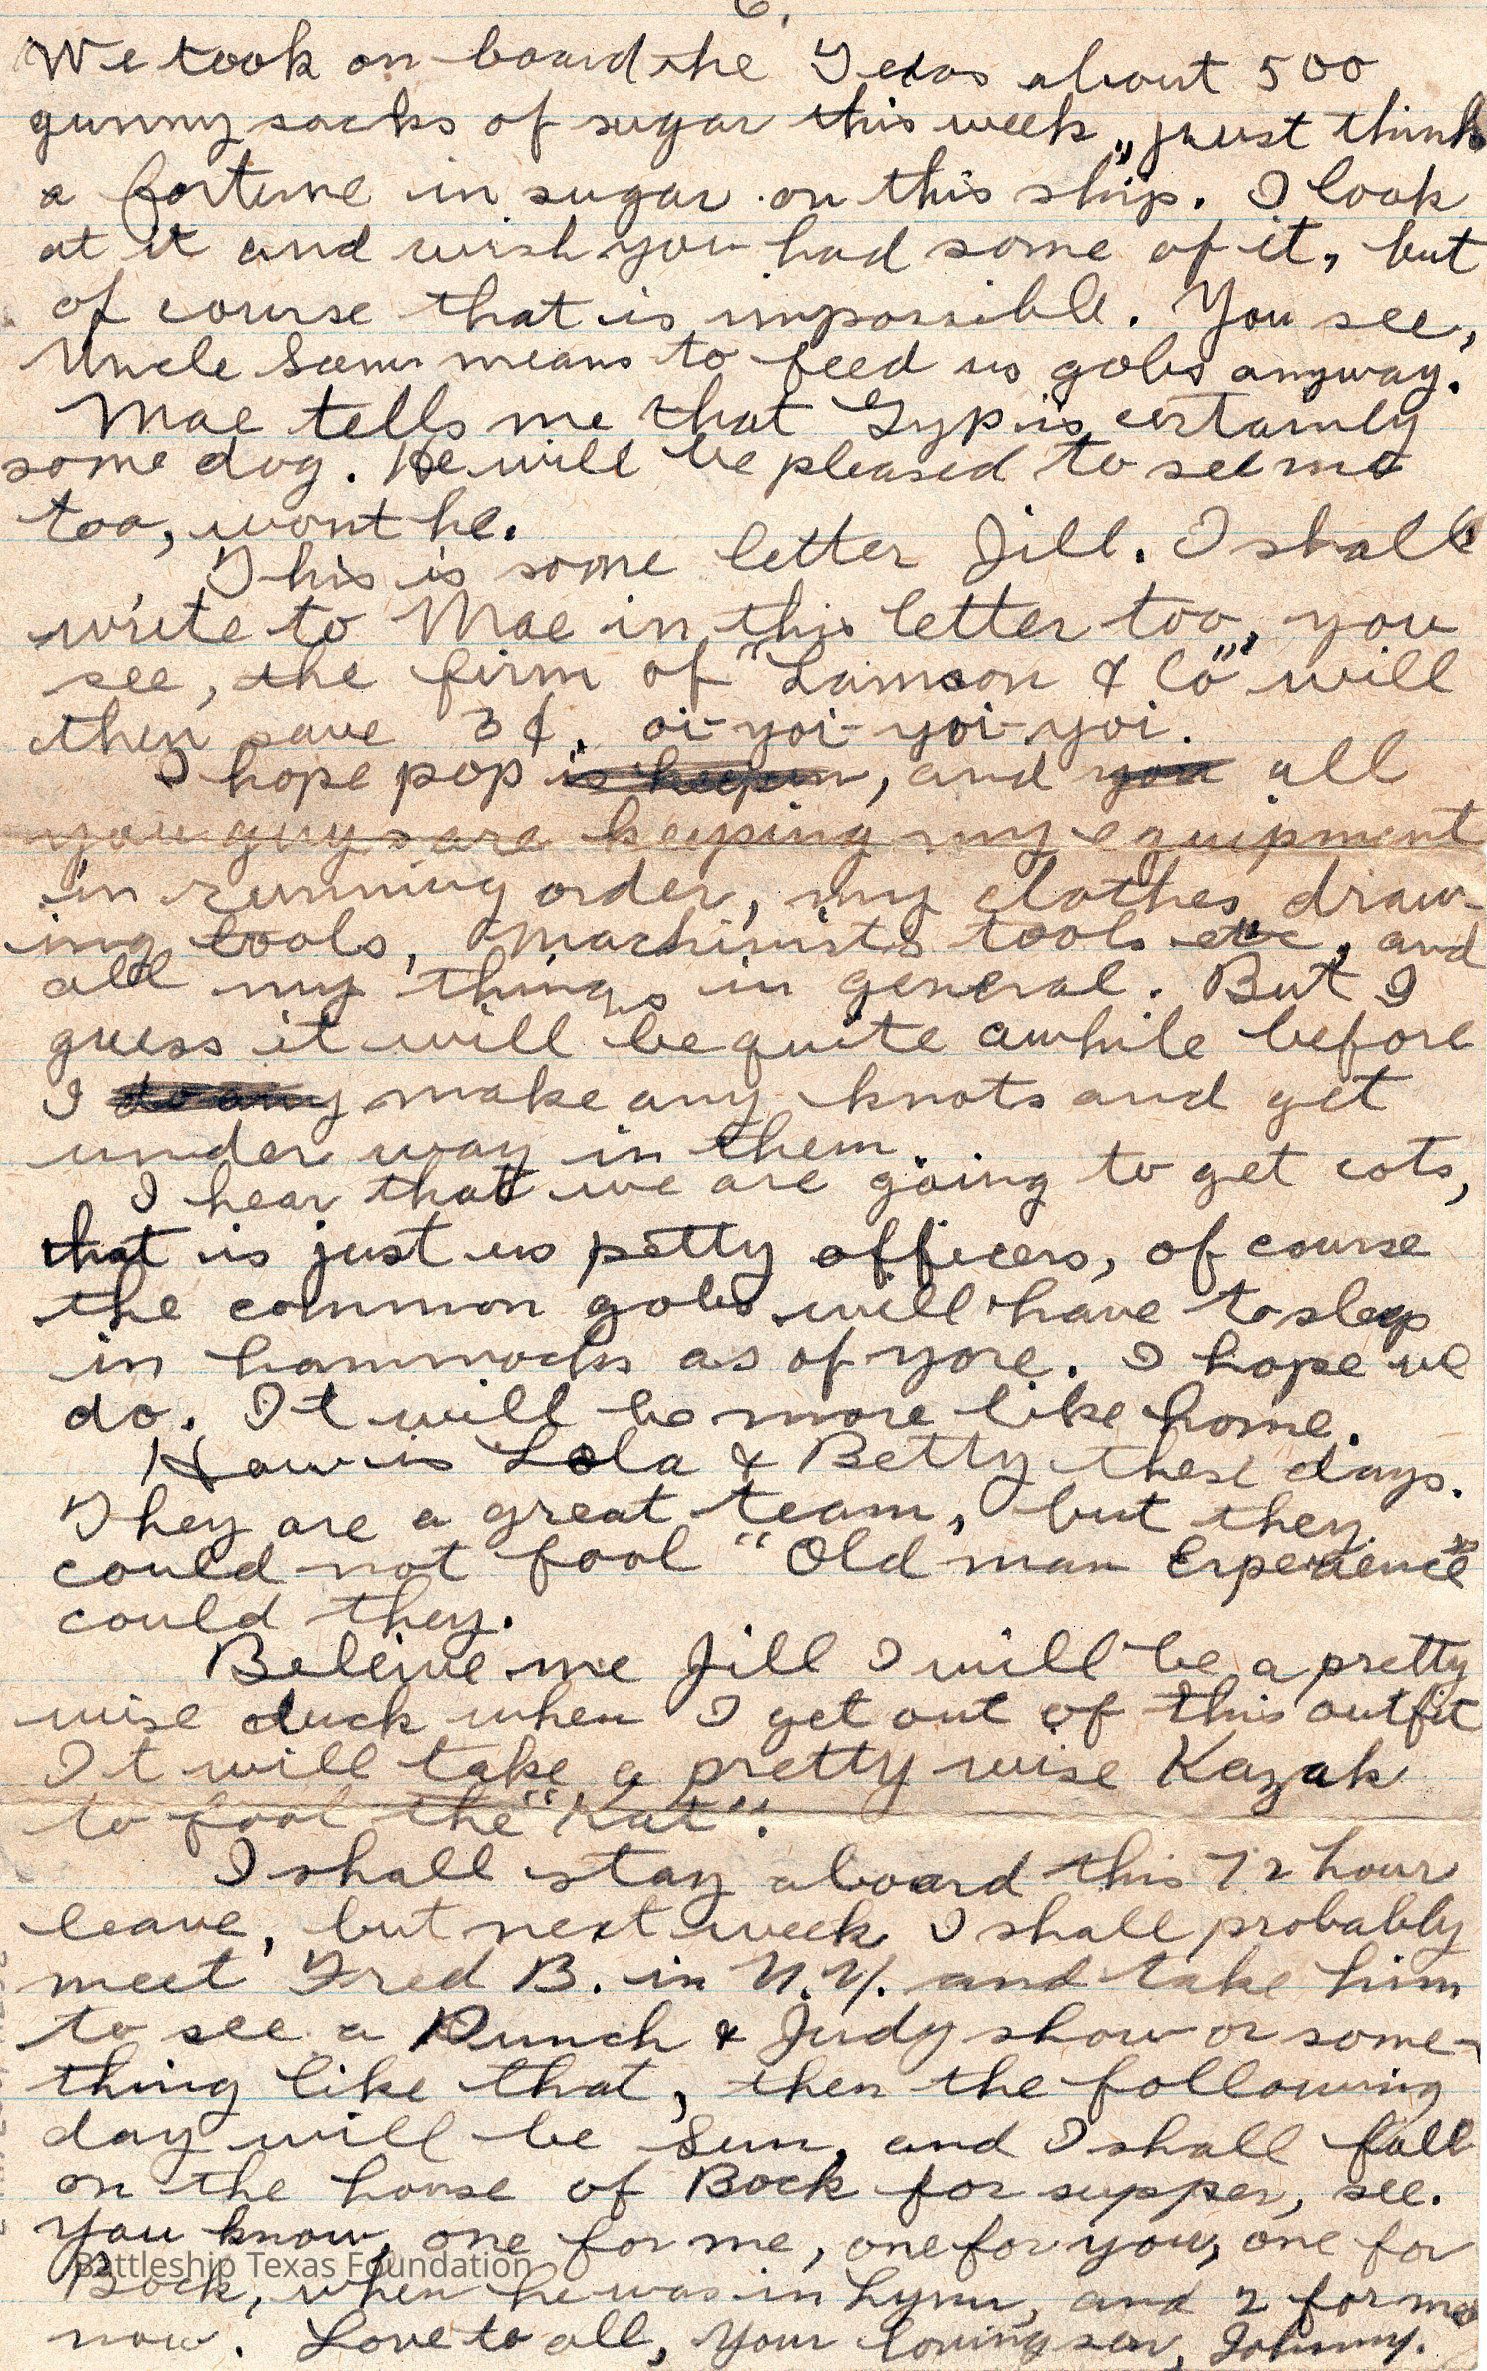 6.
We took on board the Texas about 500
gunny sacks of sugar this week „ just think
a fortune in sugar on this ship. I look
at it and wish you had some of it, but
of course that is impossible. You see,
Uncle Sam means to feed us gobs anyway.
Mae tells me that Gyp is certainly
some dog. He will be pleased to see me
too, wont he.
This is some letter Jill. I shall
write to Mae in this letter too, you
see, the firm of "Lamson & Co" will
then save 3¢. oi-yoi-yoi-yoi.
I hope pop is keepin, and you all
you guys are keeping my equipment
in running order, my clothes, draw-
ing tools, machinists tools etc, and
all my things in general. But I
guess it will be quite awhile before
I do any make any knots and get
under way in them.
I hear that we are going to get cots,
that is just us petty officers, of course
the common gobs will have to sleep
in hammocks as of yore. I hope we
do. It will be more like home.
How is Lola & Betty these days.
They are a great team, but they
could not fool "Old man Experience"
could they.
Beleive me Jill I will be a pretty
wise duck when I get out of this outfit
It will take a pretty wise Kazak
to fool the "Kat".
I shall stay aboard this 72 hour
leave, but next week I shall probably
meet Fred B. in N.Y. and take him
to see a Punch & Judy show or some-
thing like that, then the following
day will be Sun, and I shall fall
on the house of Bock for supper, see.
You know, one for me, one for you, one for
Bock, when he was in Lynn, and 2 for me
now. Love to all, Your loving son, Johnny.
Battleship Texas Foundation